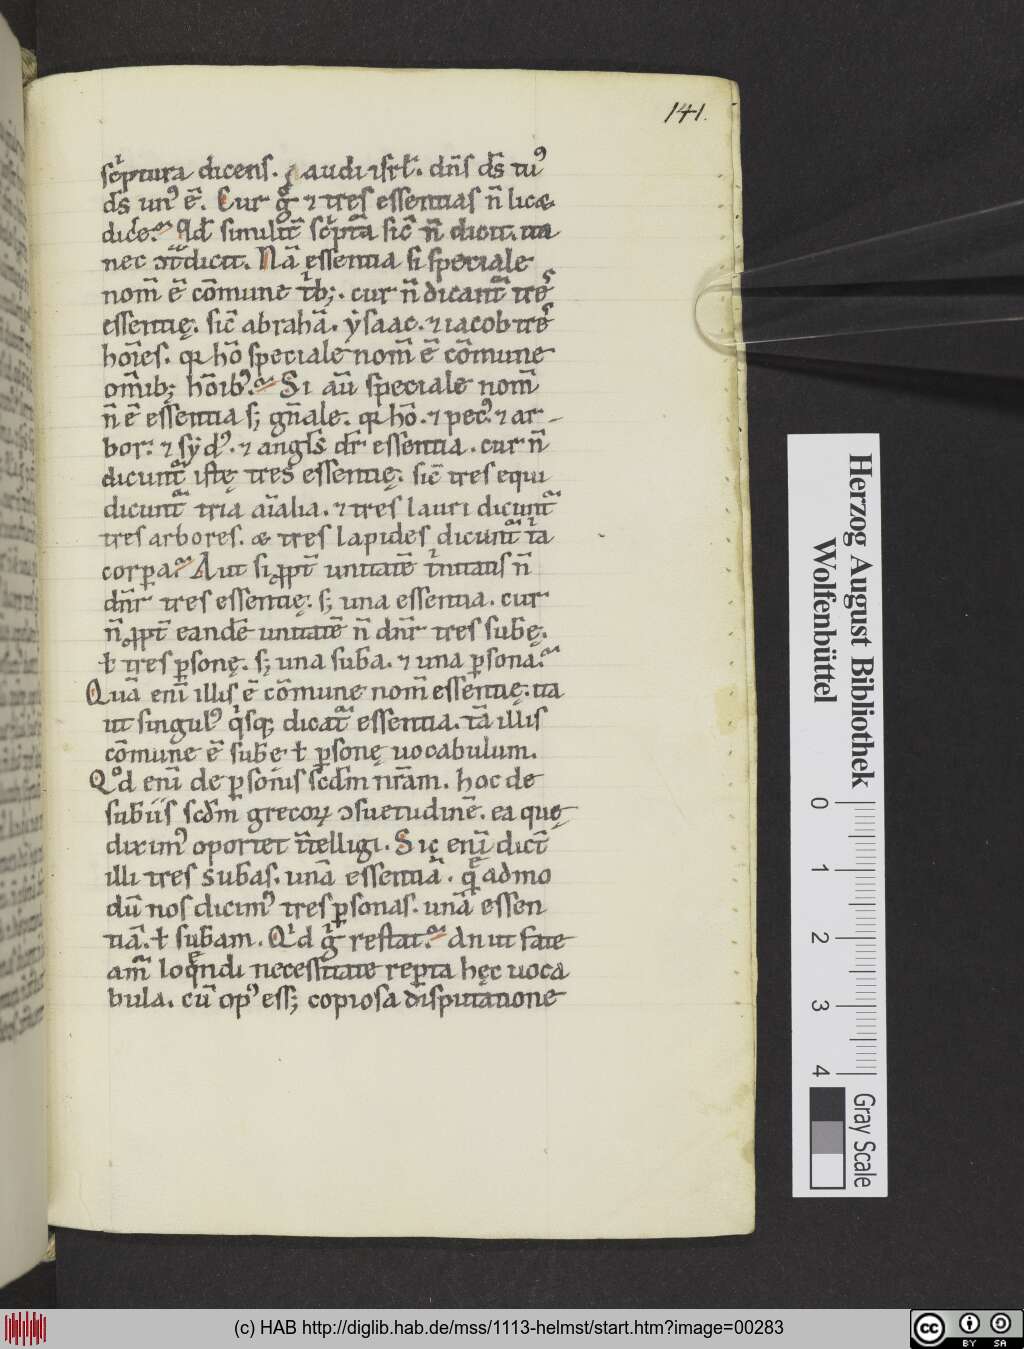 141.
sc͛ptura dicens. gaudi isrl̄. dn̄s ds̄ tuꝰ
ds̄ unꝰ ē. Cur g̊ ⁊ tres essentias n̄ licæ
dice͛. Ad simulit̄ sc͛pta sic̄ n̄ dicit. ita
nec ↄt̄dicit. Nā essentia si speciale
nom̄ ē cōmune t͛bꝫ. cur n̄ dicant᷑ tres
essentię. sic̄ abrahā. ẏsaac. ⁊ iacob tres
hoīes. qꝛ hō speciale nom̄ ē cōmune
om̄ibꝫ hōibꝰ. Si aū speciale nom̄
n̄ ē essentia sꝫ gn̄ale. qꝛ hō. ⁊ pecꝰ. ⁊ ar-
bor. ⁊ sẏdꝰ. ⁊ angl̄s dr̄ essentia. cur n̄
dicunt᷑ istę tres essentię. sic̄ tres equi
dicunt᷑ tria aīalia. ⁊ tres lauri dicunt᷑
tres arbores. æ tres lapides dicunt᷑ t͛a
corpa. Aut si ꝓpt̄ unitatē t͛nitatis n̄
dn̄r tres essentię. sꝫ una essentia. cur
n̄ ꝓpt̄ eandē unitatē n̄ dn̄r tres sub̄ę.
ł tres ꝑsonę. sꝫ una sub̄a. ⁊ una ꝑsona.
Quā enī illis ē cōmune nom̄ essentię. ita
ut singulꝰ q͛sqꝫ dicat᷑ essentia. tā illis
cōmune ē sub̄ę ł ꝑsonę uocabulum.
Qd̊ enī de ꝑsonis scd̄m nr̄am. hoc de
sub̄iis scd̄m grecoꝝ ↄsuetudinē. ea quę
diximꝰ oportet īt̄elligi. Sic enī dic̄t
illi tres sub̄as. unā essentiā. quēadmo
dū nos dicimꝰ tres ꝑsonas. unā essen
tiā. ł sub̄am. Qid g̊ restat. An ut fate
am᷑ loquendi necessitate reꝑta hęc uoca
bula. cū opꝰ essꝫ copiosa disputatione
Herzog August Bibliothek
Wolfenbüttel
0 1 2 3 4
Gray Scale
(c) HAB http://diglib.hab.de/mss/1113-helmst/start.htm?image=00283
cc BY SA